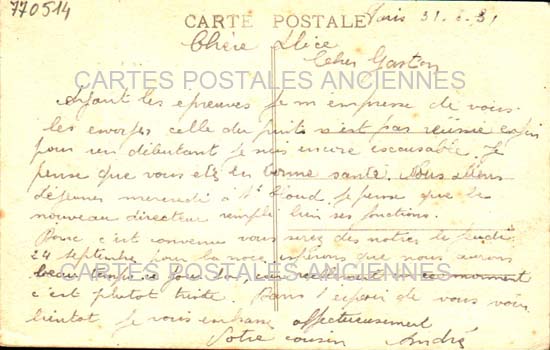 770514
CARTE POSTALE
Paris 31.8.31
Chère Alice
Cher Gaston
CARTES POSTALES ANCIENNES
Ayant les épreuves je m'empresse de vous
les envoyer celle du puits n'est pas réussie enfin
pour un débutant je suis encore excusable. Je
pense que vous etes en bonne santé. Nous allons
déjeuner mercredi à St Cloud. Je pense que le
nouveau directeur remplit bien ses fonctions.
Donc c'est convenu vous serez des notres le jeudi
24 septembre pour la noce espérons que nous aurons
beau temps ce jour là, car en ce moment
CARTES POSTALES ANCIENNES
c'est plutot triste. Dans l'espoir de vous voir
bientot je vous embrasse affectueusement
Votre cousin André